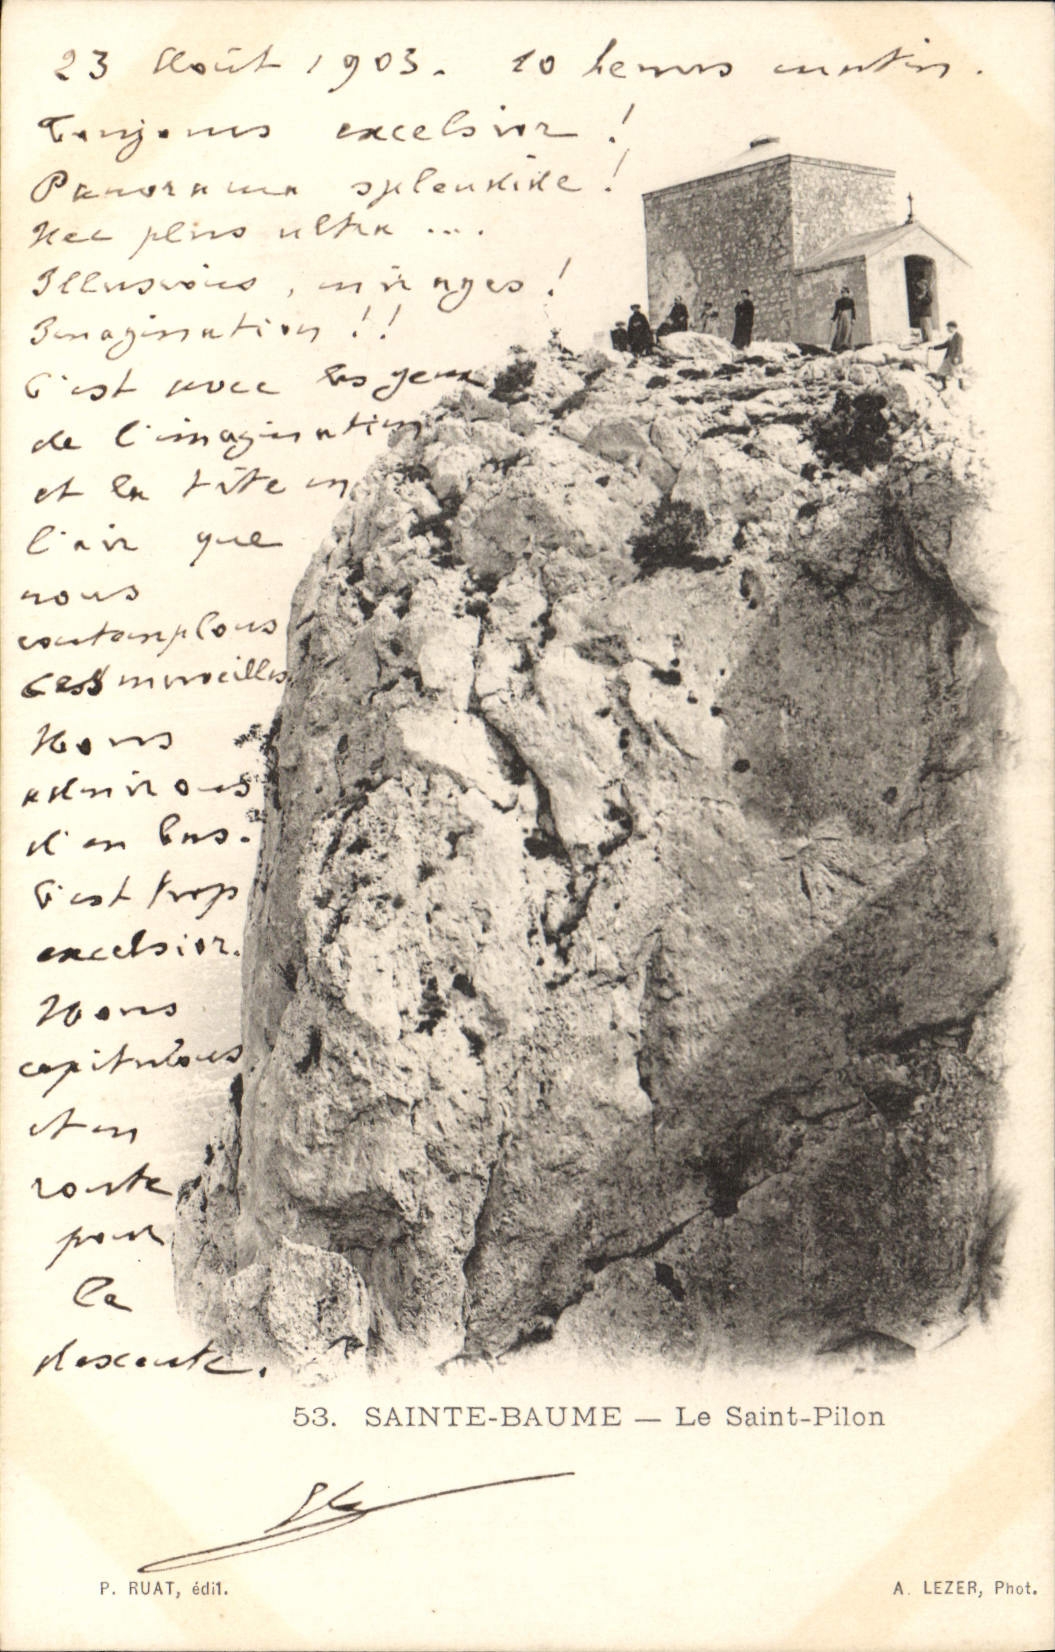 23 Août 1903. 10 heures matin.
Toujours excelsior !
Panorama splendide !
Nec plus ultra ....
Illusions, mirages !
Imagination !!
C'est avec les yeux
de l'imagination
et la tête en
l'air que
nous
contemplons
ces merveilles.
Nous
admirons
d'en bas.
C'est trop
excelsior.
Nous
capitulons
et en
route
pour
la
descente.
53. SAINTE-BAUME — Le Saint-Pilon
P. RUAT, édit.
A. LEZER, Phot.